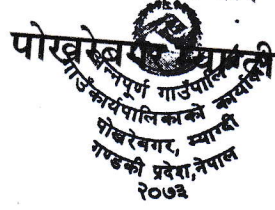 पोखरेबगर म्याग्दी
अन्नपूर्ण गाउँपालिका
गाउँकार्यपालिकाको कार्यालय
पोखरेबगर, म्याग्दी
गण्डकी प्रदेश, नेपाल
२०७३